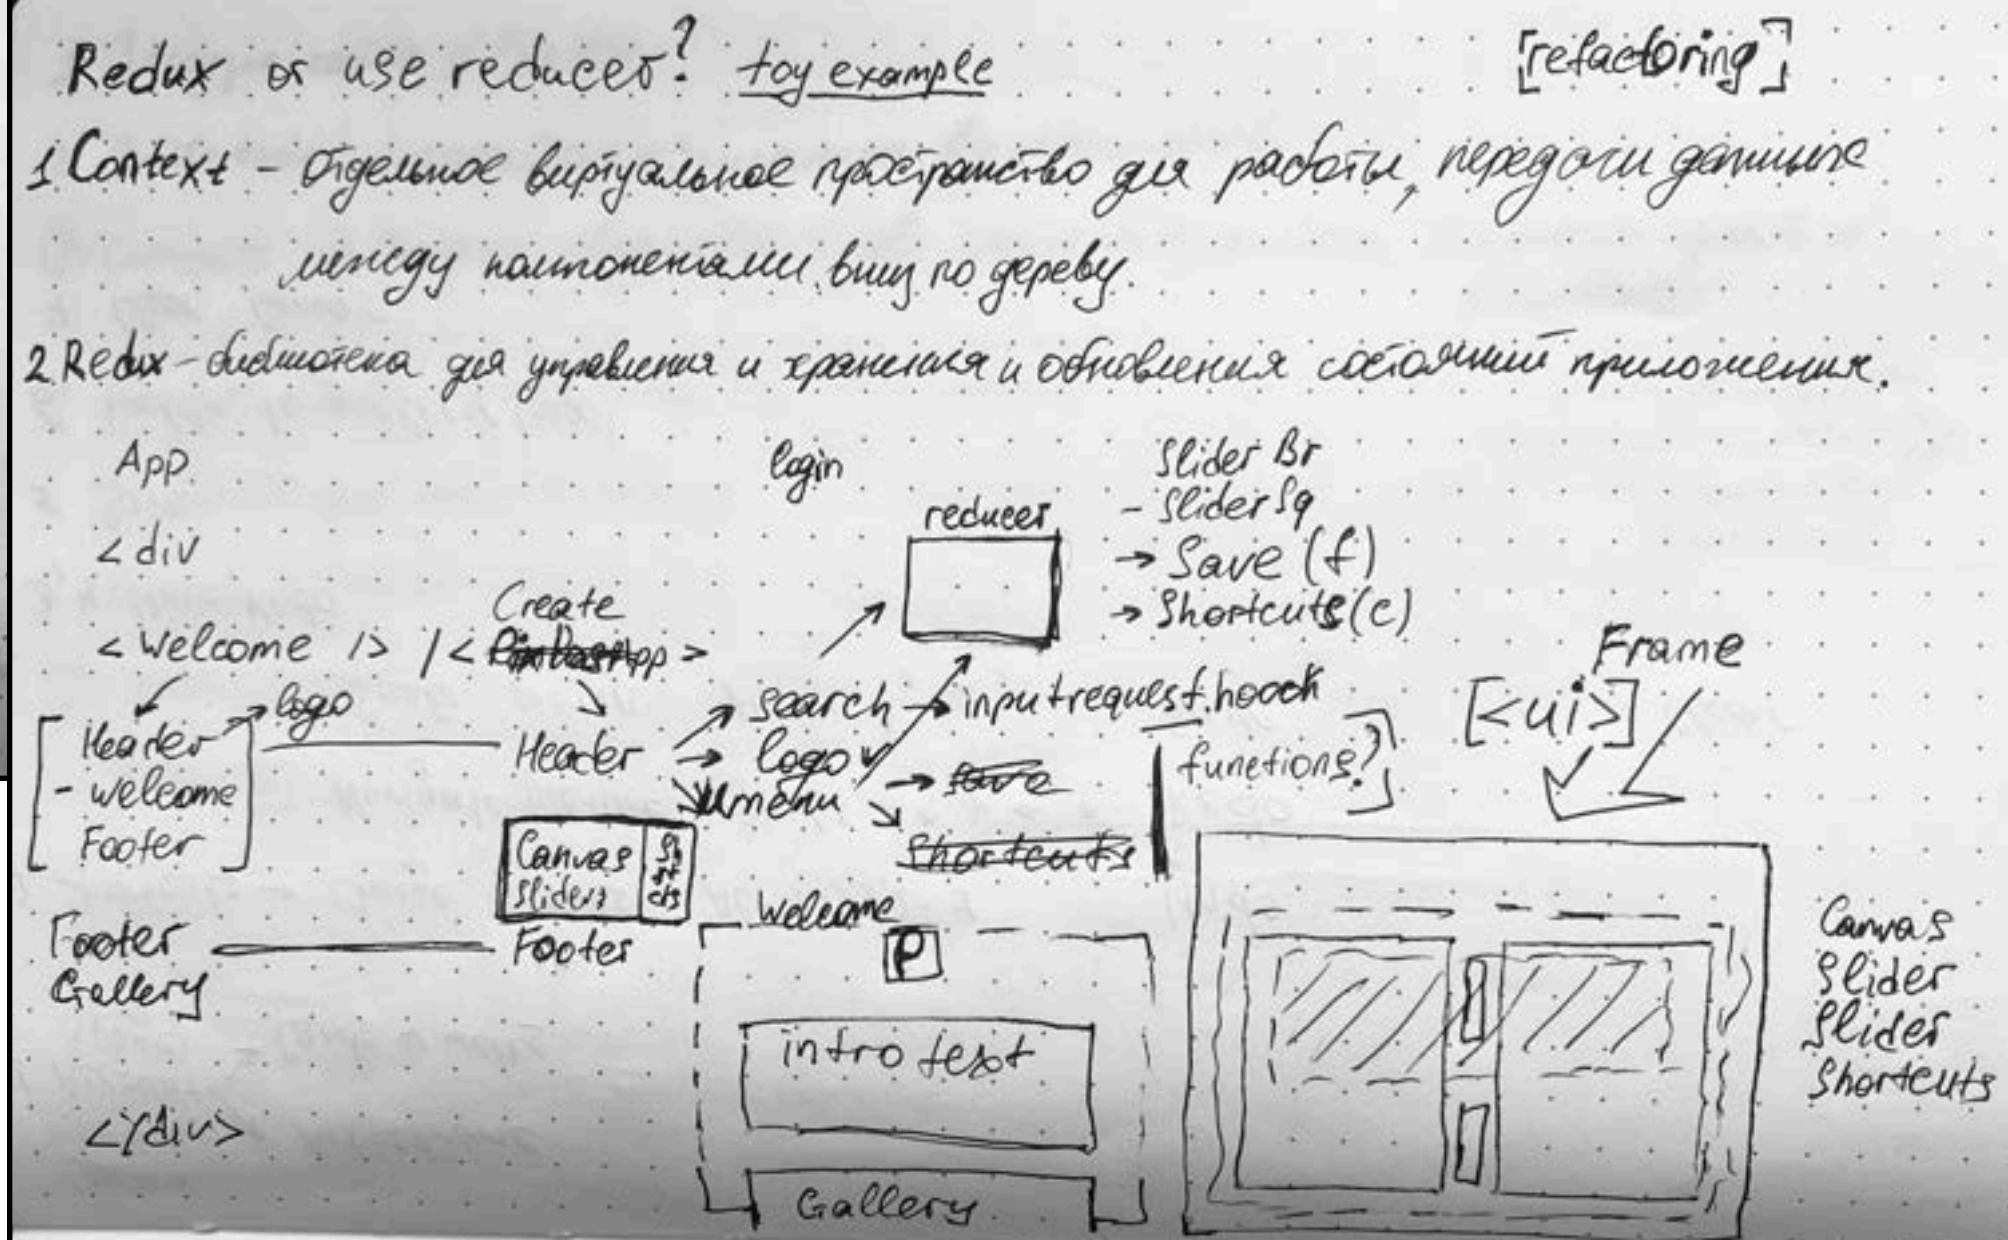 Redux or use reducer? toy example
[refactoring]
1 Context - отдельное виртуальное пространство для работы, передачи данных
между компонентами вниз по дереву.
2 Redux - библиотека для управления и хранения и обновления состояний приложения.
App
<div
<Welcome /> / < Create App >
Header → logo
- welcome
Footer
Footer
Gallery
</div>
Header
Canvas
Sliders
Footer
login
reducer
search → inputrequest.hook
logo
menu → save
shortcuts
functions?
Slider Br
- Slider Sq
→ Save (f)
→ Shortcuts (c)
Frame
[<ui>]
Welcome
P
intro text
Gallery
Canvas
Slider
Slider
Shortcuts